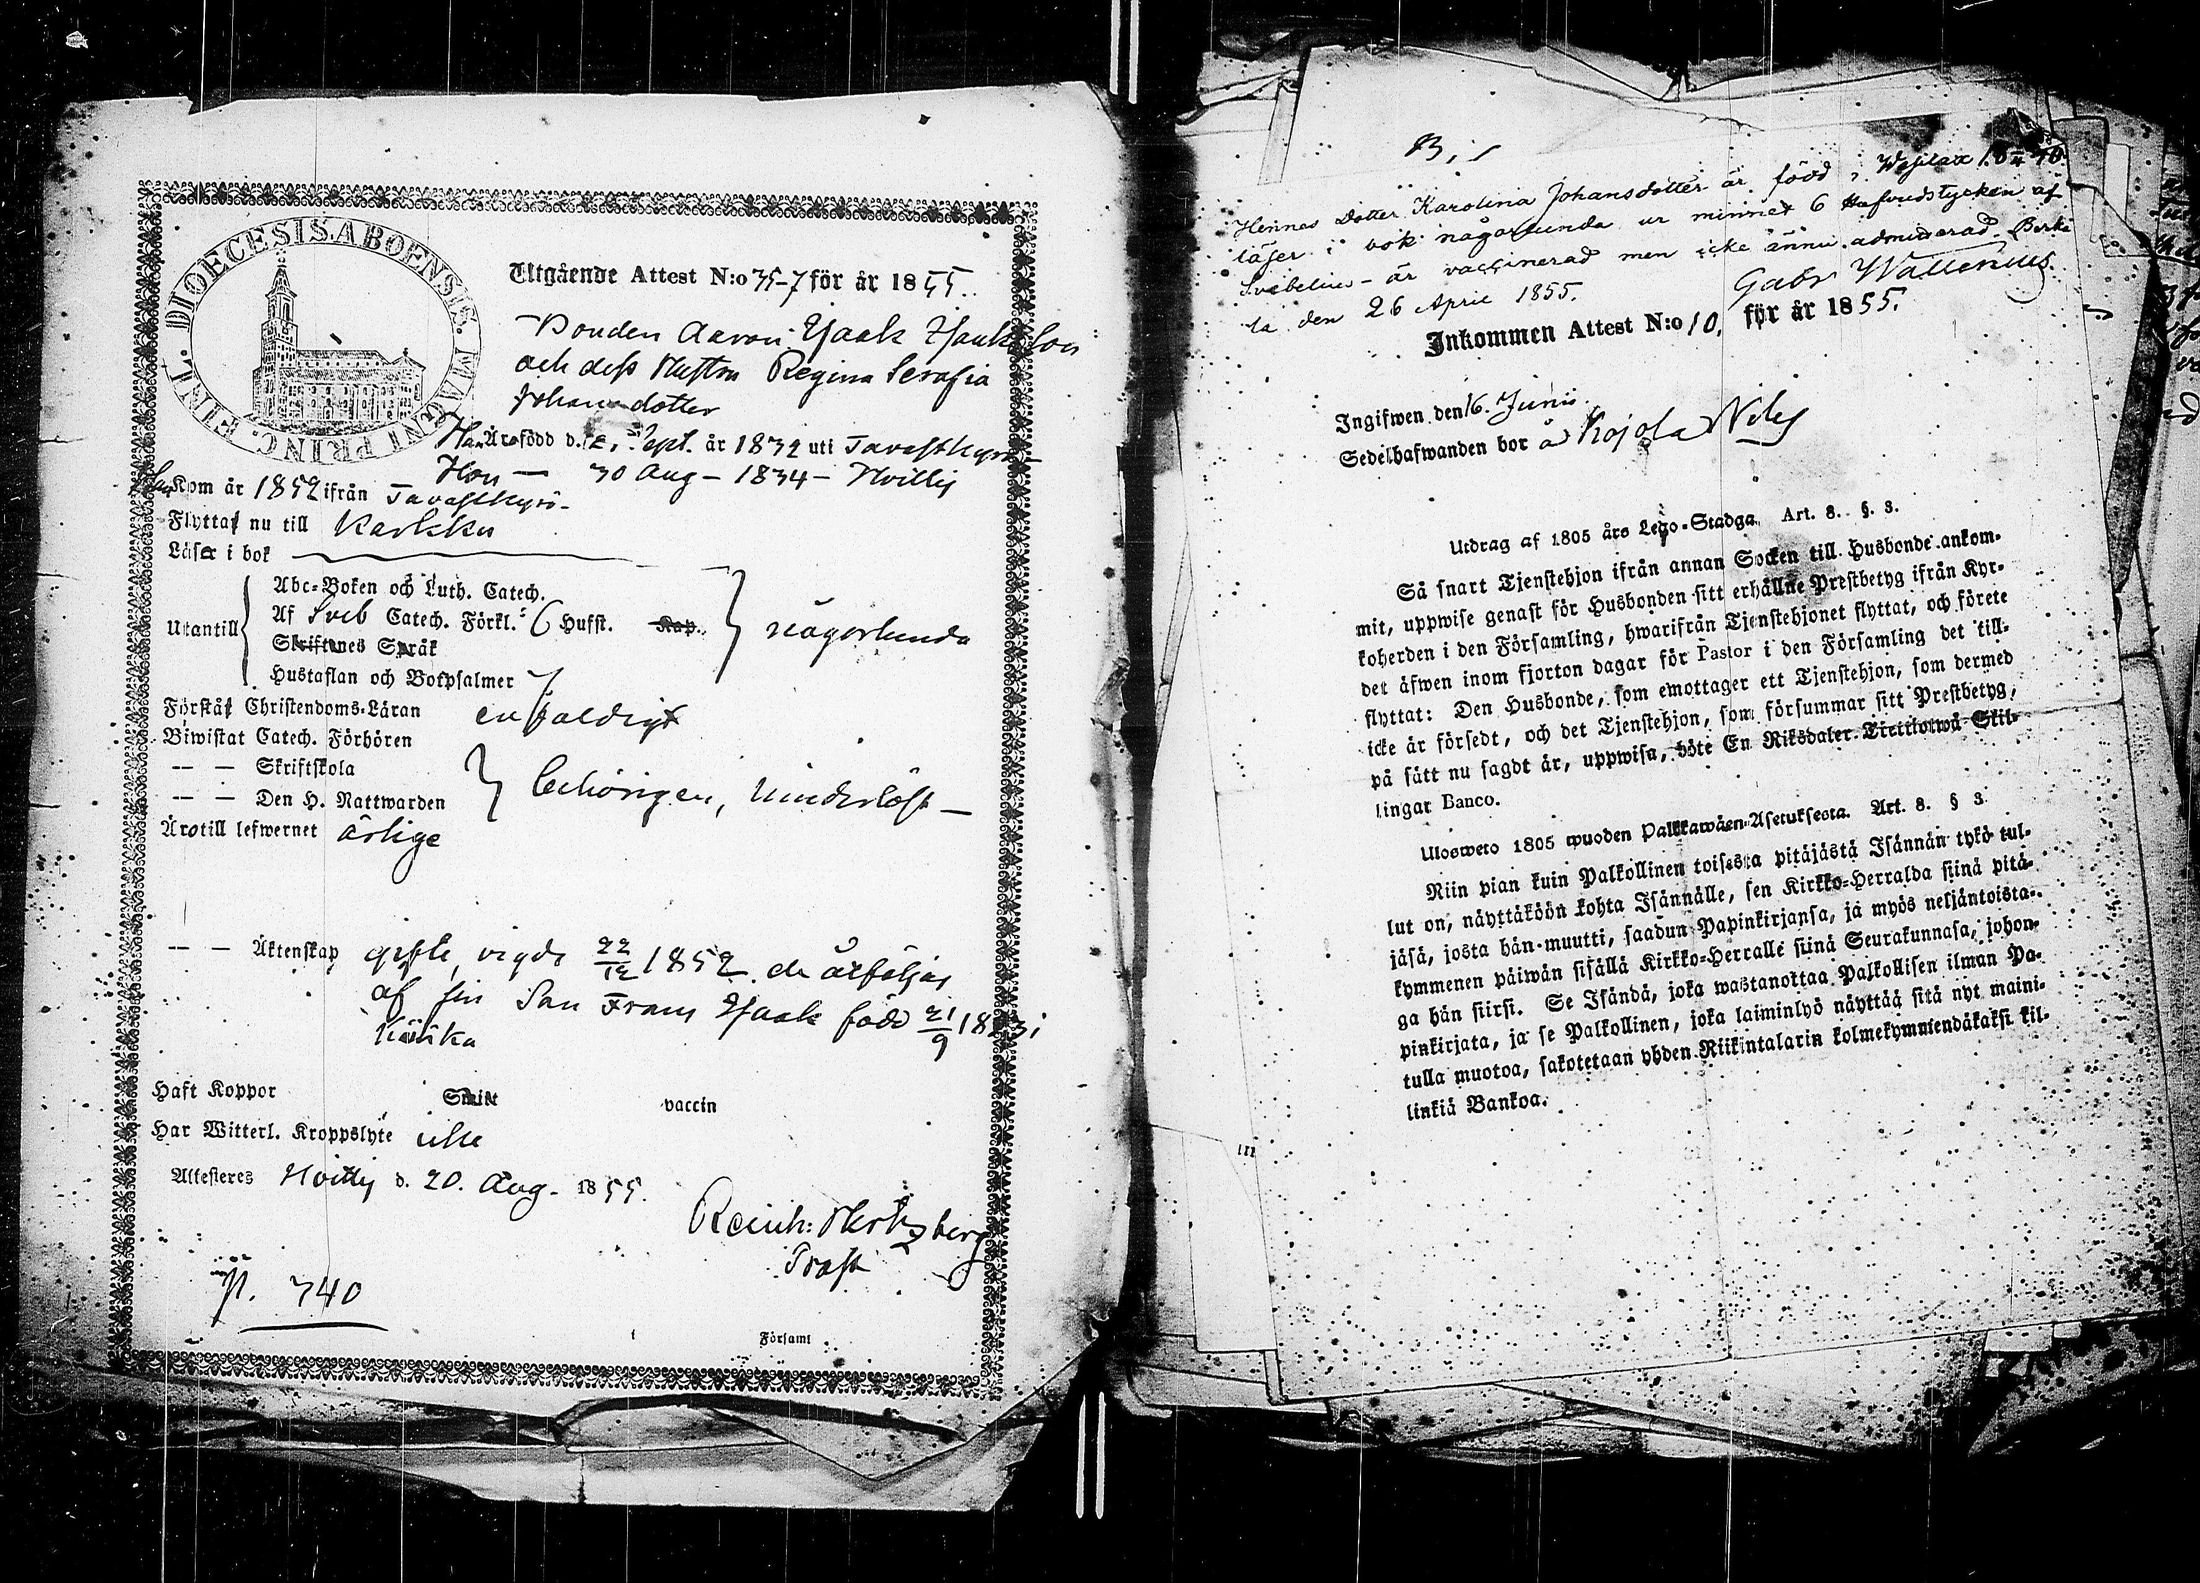 DIOECESIS ABOENSIS. MAGNI PRINC. FINL.
Utgående Attest N:o 35-7 för år 1855.
Bonden Aaron Isaak Isaaksson
och dess Hustru Regina Serafia
Johansdotter
Han Äro född d. 2. Sept. år 1832 uti Tavastkyro
Hon — 30 Aug – 1834 – Hvittis
Han Kom år 1852 ifrån Tavastkyro.
Flytta nu till Karkku
Läser i bok
Abc-Boken och Luth. Catech.
Af Sveb Catech. Förkl. 6 Hufst. Kap.
Utantill
någorlunda
Skriftenes Språk
Hustaflan och Botpsalmer
Förstår Christendoms-Läran enfaldigt
Biwistat Catech. Förhören
— — Skriftskola
behörigen,
— — Den H. Nattwarden
Äro till lefwernet ärlige
— — Äktenskap gifte, vigde 22/12 1852. de åtföljas
af sin Son Frans Isaak född 21/9 18 3 i
Haft Koppor Smitt vaccin
Har Witterl. Kroppslyte icke
Attesteres Hvittis d. 20. Aug. 1855.
Reinh: Hertzberg
Prost
p. 740
Församl
B, 1
Hennes Dotter Karolina Johansdotter är född i Vesilax 18 40.
läser i bok någorlunda ur minnet 6 Hufvudstycken af
Svebelius – är vaccinerad men icke ännu admitterad. Birka
la den 26 April 1855. Gabr Wallenius.
Inkommen Attest N:o 10. för år 1855.
Ingifwen den 16. Junii.
Sedelhafwanden bor å Kojola
Utdrag af 1805 års Lego-Stadga Art. 8. §. 3.
Så snart Tjenstehjon ifrån annan Socken till Husbonde ankom-
mit, uppwise genast för Husbonden sitt erhållne Prestbetyg ifrån Kyr-
koherden i den Församling, hwarifrån Tjenstehjonet flyttat, och förete
det äfwen inom fjorton dagar för Pastor i den Församling det till-
flyttat: Den Husbonde, som emottager ett Tjenstehjon, som dermed
icke är försedt, och det Tjenstehjon, som försummar sitt Prestbetyg,
på sätt nu sagdt är, uppwisa, böte En Riksdaler Trettiotwå Skil-
lingar Banco.
Ulosweto 1805 wuoden Palkkawäen-Asetuksesta. Art. 8. § 3
Niin pian kuin Palkollinen toisesta pitäjästä Isännän tykö tul-
lut on, näyttäköön kohta Isännälle, sen Kirkko-Herralda siinä pitä-
jäsä, josta hän muutti, saadun Papinkirjansa, ja myös neljäntoista-
kymmenen päiwän sisällä Kirkko-Herralle siinä Seurakunnasa, johon-
ga hän siirsi. Se Isändä, joka wastanottaa Palkollisen ilman Pa-
pinkirjata, ja se Palkollinen, joka laiminlyö näyttää sitä nyt maini-
tulla muotoa, sakotetaan yhden Riikintalarin kolmekymmendäkaksi kil-
linkiä Bankoa.